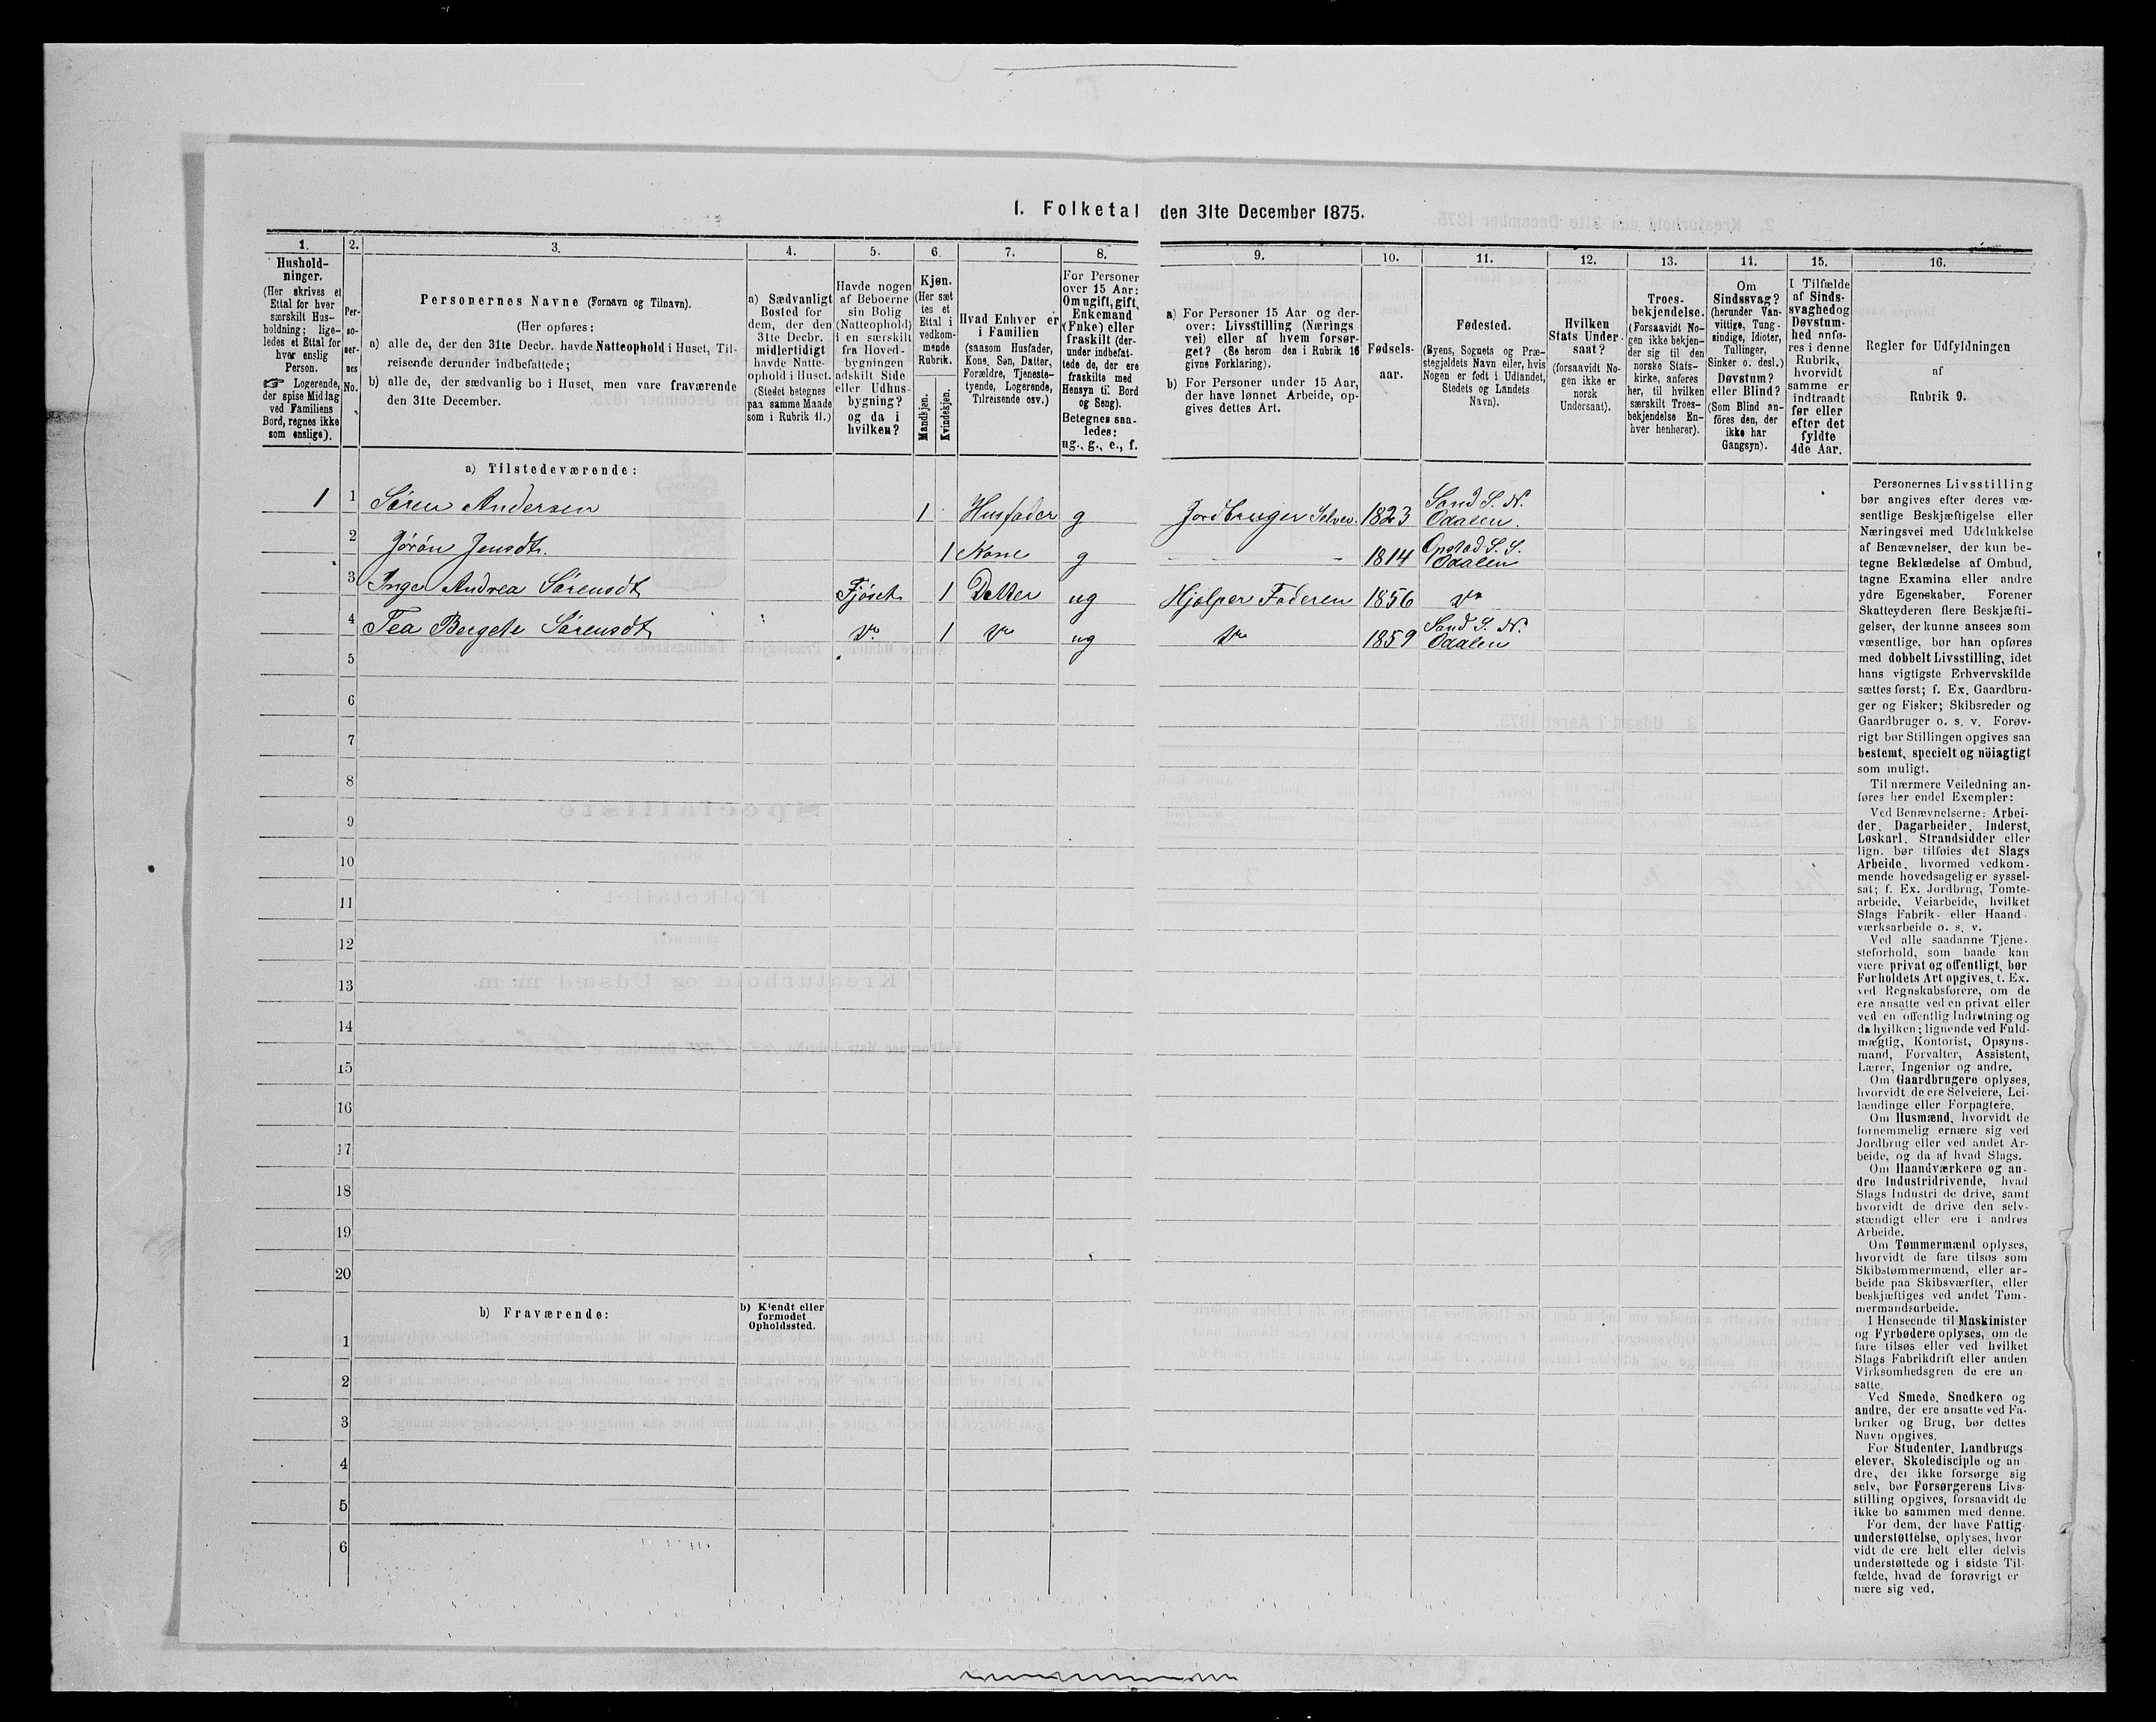 1. Folketal den 31te December 1875.
1.
Hushold-
ninger.
(Her skrives et
Ettal for hver
særskilt Hus-
holdning; lige-
ledes et Ettal for
hver enslig
Person.
☞ Logerende,
der spise Middag
ved Familiens
Bord, regnes ikke
som enslige).
2.
Per-
so-
ner-
nes
No.
3.
Personernes Navne (Fornavn og Tilnavn).
(Her opføres:
a) alle de, der den 31te Decbr. havde Natteophold i Huset, Til-
reisende derunder indbefattede;
b) alle de, der sædvanlig bo i Huset, men vare fraværende
den 31te December.
4.
a) Sædvanligt
Bosted for
dem, der den
31te Decbr.
midlertidigt
havde Natte-
ophold i Huset.
(Stedet betegnes
paa samme Maade
som i Rubrik 11.)
5.
Havde nogen
af Beboerne
sin Bolig
(Natteophold)
i en særskilt
fra Hoved-
bygningen
adskilt Side
eller Udhus-
bygning?
og da i
hvilken?
6.
Kjøn.
(Her sæt
tes et
Ettal i
vedkom-
mende
Rubrik.
Mandkjøn.
Kvindekjøn.
7.
Hvad Enhver er
i Familien
(saasom Husfader,
Kone, Søn, Datter,
Forældre, Tjeneste-
tyende, Logerende,
Tilreisende osv.)
8.
For Personer
over 15 Aar:
Om ugift, gift,
Enkemand
(Enke) eller
fraskilt (der-
under indbefat-
tede de, der ere
fraskilte med
Hensyn til Bord
og Seng).
Betegnes saa-
ledes:
ug., g., e., f.
9.
a) For Personer 15 Aar og der-
over: Livsstilling (Nærings
vei) eller af hvem forsør-
get? (Se herom den i Rubrik 16
givne Forklaring).
b) For Personer under 15 Aar,
der have lønnet Arbeide, op-
gives dettes Art.
10.
Fødsels-
aar.
11.
Fødested.
(Byens, Sognets og Præ-
stegjeldets Navn eller, hvis
Nogen er født i Udlandet,
Stedets og Landets
Navn).
12.
Hvilken
Stats Under
saat?
(forsaavidt No-
gen ikke er
norsk
Undersaat).
13.
Troes-
bekjendelse.
(Forsaavidt No-
gen ikke bekjen-
der sig til den
norske Stats-
kirke, anføres
her, til hvilken
særskilt Troes-
bekjendelse En-
hver henhører).
14.
Om
Sindssvag?
(herunder Van-
vittige, Tung-
sindige, Idioter,
Tullinger,
Sinker o. desl.)
Døvstum?
eller Blind?
(Som Blind an-
føres den, der
ikke har
Gangsyn).
15.
I Tilfælde
af Sinds-
svaghed og
Døvstum-
hed anfø-
res i denne
Rubrik,
hvorvidt
samme er
indtraadt
før eller
efter det
fyldte
4de Aar.
16.
Regler for Udfyldningen
af
Rubrik 9.
a) Tilstedeværende:
1 1 Søren Andersen 1 Husfader g Jordbruger Selvei. 1823 Sand S. N.
Odalen.
2 Jørøn Jensdt. 1 Kone g — — 1814 Opstad S. S.
Odalen
3 Inge Andrea Sørensdt Fjöset 1 Datter ug Hjælper Faderen 1856 do
4 Tea Bergete Sørensdt do 1 do ug do 1859 Sand S. N.
Odalen
5
6
7
8
9
10
11
12
13
14
15
16
17
18
19
20
b) Fraværende:
b) Kjendt eller
formodet
Opholdssted.
1
2
3
4
5
6
Personernes Livsstilling
bør angives efter deres væ-
sentlige Beskjæftigelse eller
Næringsvei med Udelukkelse
af Benævnelser, der kun be-
tegne Beklædelse af Ombud,
tagne Examina eller andre
ydre Egenskaber. Forener
Skatteyderen flere Beskjæfti-
gelser, der kunne ansees som
væsentlige, bør han opføres
med dobbelt Livsstilling, idet
hans vigtigste Erhvervskilde
sættes først; f. Ex. Gaardbru-
ger og Fisker; Skibsreder og
Gaardbruger o. s. v. Forøv-
rigt bør Stillingen opgives saa
bestemt, specielt og nöiagtigt
som muligt.
Til nærmere Veiledning an-
føres her endel Exempler:
Ved Benævnelserne: Arbei-
der, Dagarbeider, Inderst,
Løskarl, Strandsidder eller
lign. bør tilføies det Slags
Arbeide, hvormed vedkom-
mende hovedsagelig er syssel-
sat; f. Ex. Jordbrug, Tomte-
arbeide, Veiarbeide, hvilket
Slags Fabrik- eller Haand-
værksarbeide o. s. v.
Ved alle saadanne Tjene-
steforhold, som baade kan
være privat og offentligt, bør
Forholdets Art opgives, f. Ex.
ved Regnskabsførere, om de
ere ansatte ved en privat eller
ved en offentlig Indretning og
da hvilken; lignende ved Fuld-
mægtig, Kontorist, Opsyns-
mand, Forvalter, Assistent,
Lærer, Ingeniør og andre.
Om Gaardbrugere oplyses,
hvorvidt de ere Selveiere, Lei-
lændinge eller Forpagtere.
Om Husmænd, hvorvidt de
fornemmelig ernære sig ved
Jordbrug eller ved andet Ar-
beide, og da af hvad Slags.
Om Haandværkere og an-
dre Industridrivende, hvad
Slags Industri de drive, samt
hvorvidt de drive den selv-
stændigt eller ere i andres
Arbeide.
Om Tømmermænd oplyses,
hvorvidt de fare tilsøs som
Skibstømmermænd, eller ar-
beide paa Skibsværfter, eller
beskjæftiges ved andet Tøm-
mermandsarbeide.
I Henseende til Maskinister
og Fyrbødere oplyses, om de
fare tilsøs eller ved hvilket
Slags Fabrikdrift eller anden
Virksomhedsgren de ere an-
satte.
Ved Smede, Snedkere og
andre, der ere ansatte ved Fa-
briker og Brug, bør dettes
Navn opgives.
For Studenter, Landbrugs-
elever, Skoledisciple og an-
dre, der ikke forsørge sig
selv, bør Forsørgerens Livs-
stilling opgives, forsaavidt de
ikke bo sammen med denne.
For dem, der have Fattig-
understøttelse, oplyses, hvor-
vidt de ere helt eller delvis
understøttede og i sidste Til-
fælde, hvad de forøvrigt er-
nære sig ved.